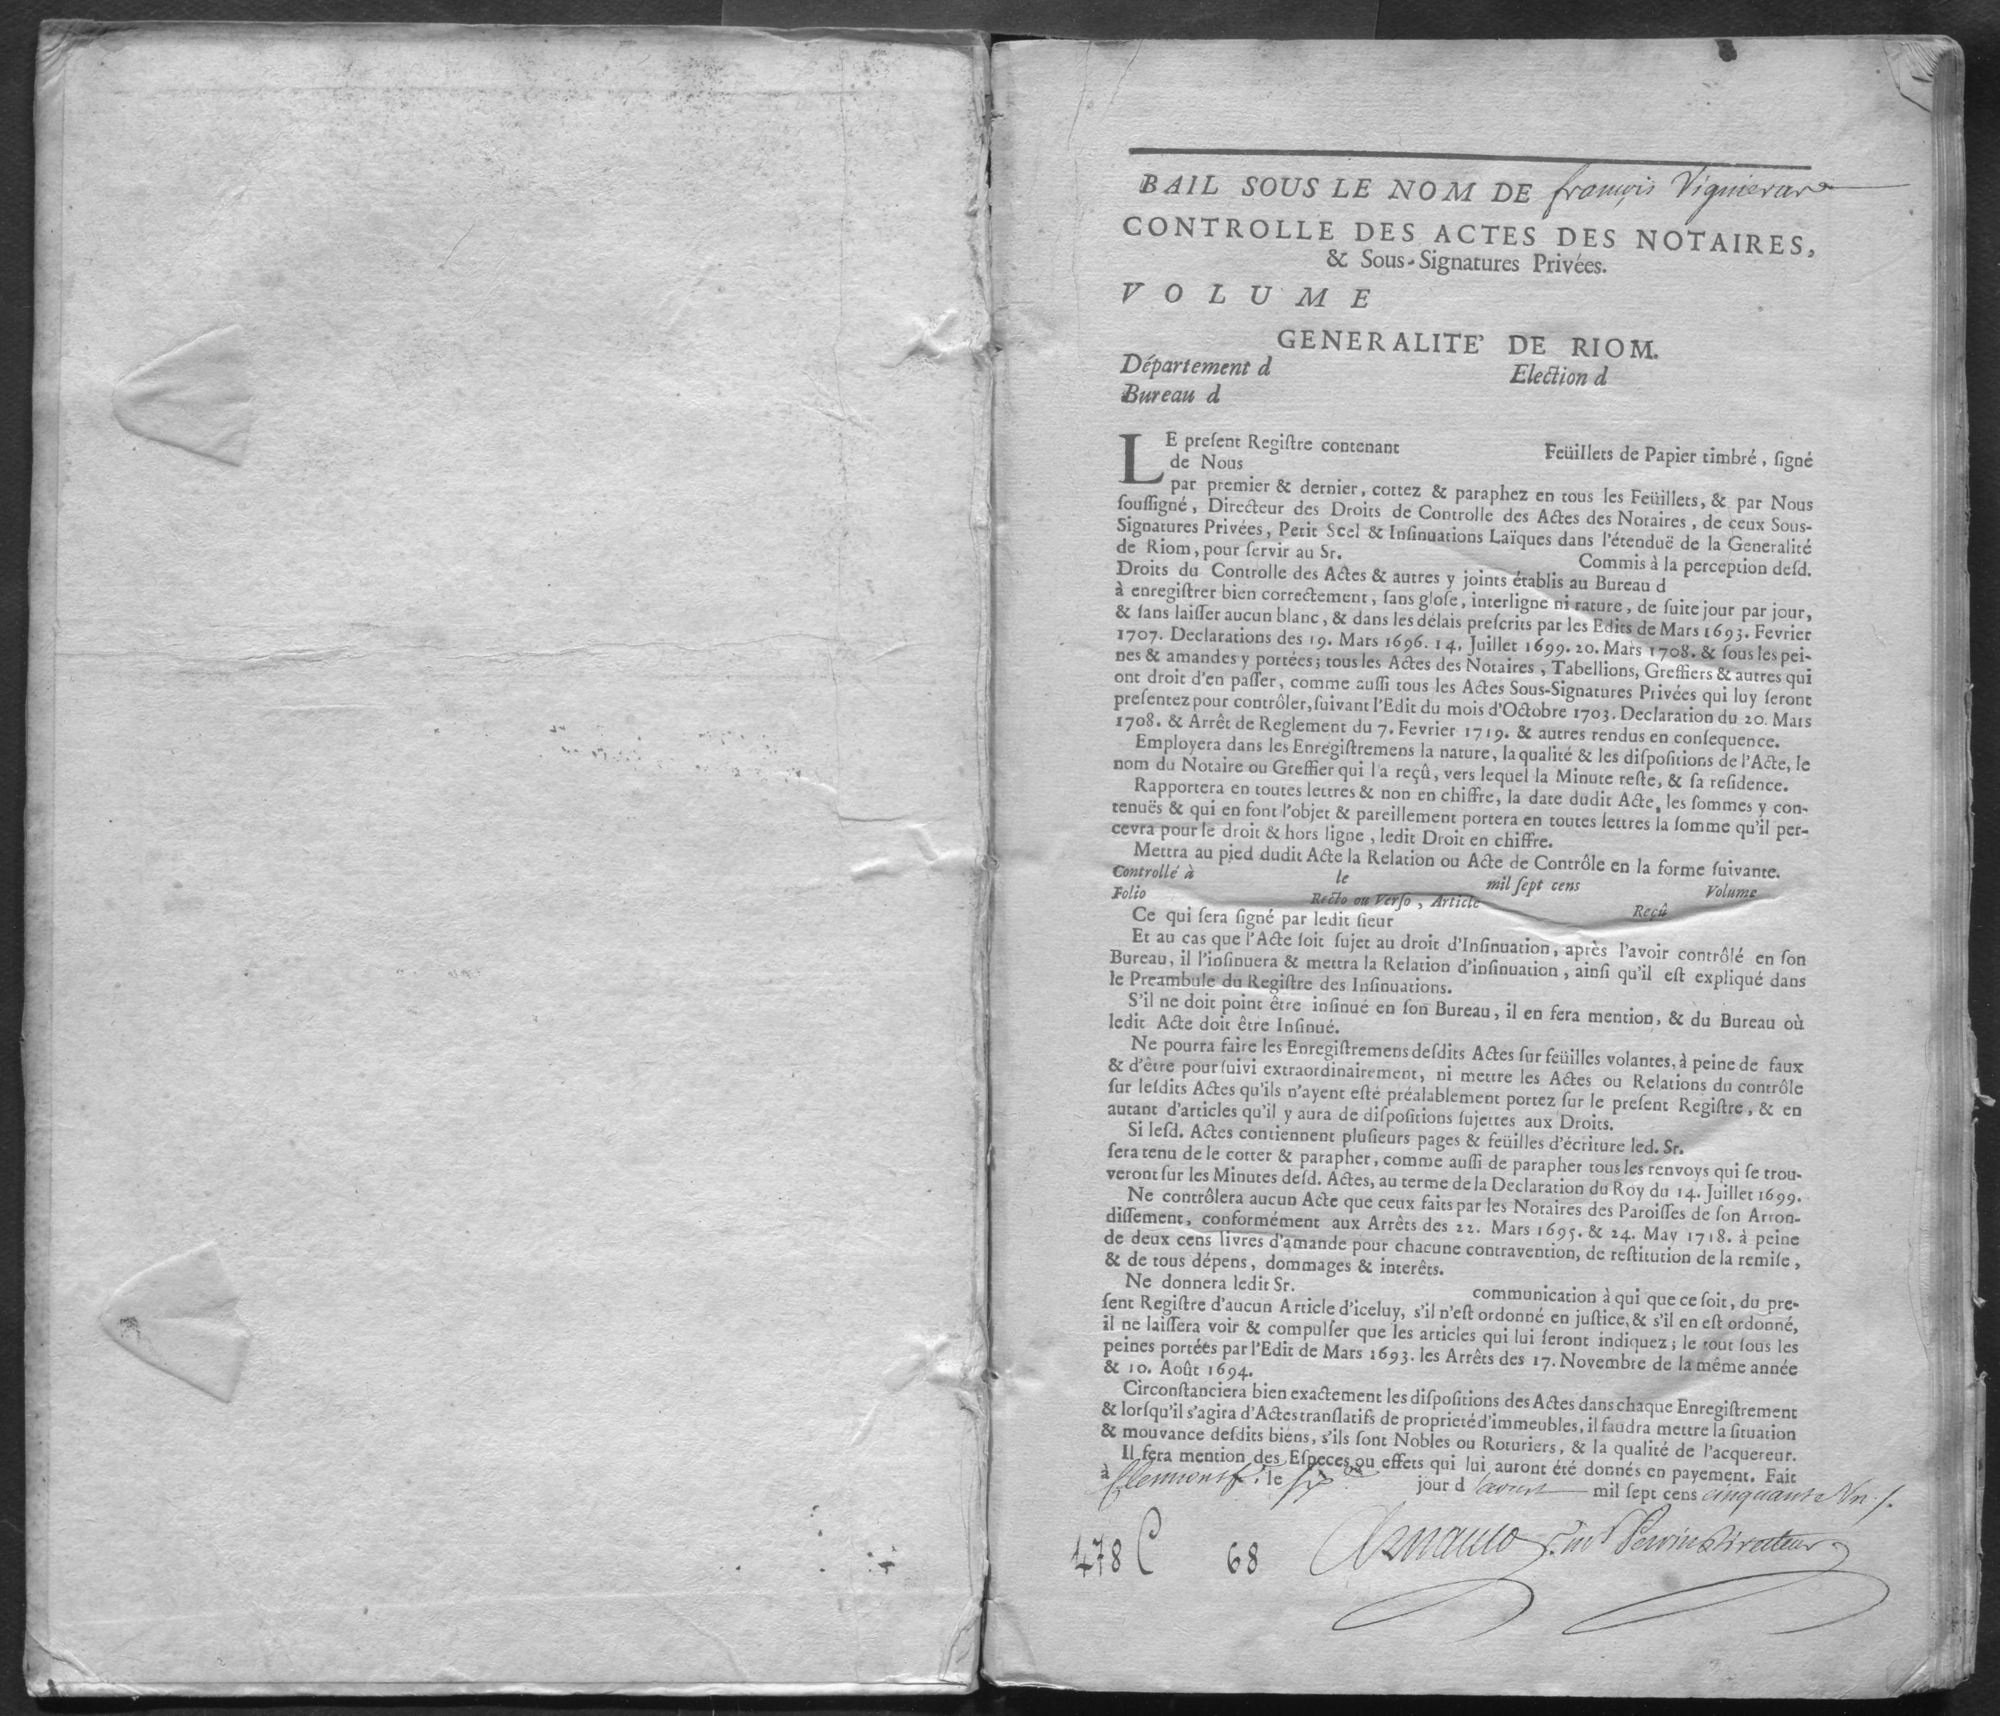 BAIL SOUS LE NOM DE françois Vignieras
CONTROLLE DES ACTES DES NOTAIRES,
& Sous-Signatures Privées.
VOLUME
GENERALITE' DE RIOM.
Département d Election d
Bureau d
LE preſent Regiſtre contenant Feüillets de Papier timbré, ſigné
de Nous
par premier & dernier, cottez & paraphez en tous les Feüillets, & par Nous
ſouſſigné, Directeur des Droits de Controlle des Actes des Notaires, de ceux Sous-
Signatures Privées, Petit Scel & Inſinuations Laïques dans l'étenduë de la Generalité
de Riom, pour ſervir au Sr. Commis à la perception deſd.
Droits du Controlle des Actes & autres y joints établis au Bureau d
à enregiſtrer bien correctement, ſans gloſe, interligne ni rature, de ſuite jour par jour,
& ſans laiſſer aucun blanc, & dans les délais preſcrits par les Edits de Mars 1693. Fevrier
1707. Declarations des 19. Mars 1696. 14. Juillet 1699. 20. Mars 1708. & ſous les pei-
nes & amandes y portées; tous les Actes des Notaires, Tabellions, Greffiers & autres qui
ont droit d'en paſſer, comme auſſi tous les Actes Sous-Signatures Privées qui luy ſeront
preſentez pour contrôler, ſuivant l'Edit du mois d'Octobre 1703. Declaration du 20. Mars
1708. & Arrêt de Reglement du 7. Fevrier 1719. & autres rendus en conſequence.
Employera dans les Enregiſtremens la nature, la qualité & les diſpoſitions de l'Acte, le
nom du Notaire ou Greffier qui l'a reçû, vers lequel la Minute reſte, & ſa reſidence.
Rapportera en toutes lettres & non en chiffre, la date dudit Acte, les ſommes y con-
tenuës & qui en font l'objet & pareillement portera en toutes lettres la ſomme qu'il per-
cevra pour le droit & hors ligne, ledit Droit en chiffre.
Mettra au pied dudit Acte la Relation ou Acte de Contrôle en la forme ſuivante.
Controllé à le mil ſept cens Volume
Folio Recto ou Verſo, Article Reçû
Ce qui ſera ſigné par ledit ſieur
Et au cas que l'Acte ſoit ſujet au droit d'Inſinuation, après l'avoir contrôlé en ſon
Bureau, il l'inſinuera & mettra la Relation d'inſinuation, ainſi qu'il eſt expliqué dans
le Preambule du Regiſtre des Inſinuations.
S'il ne doit point être inſinué en ſon Bureau, il en fera mention, & du Bureau où
ledit Acte doit être Inſinué.
Ne pourra faire les Enregiſtremens deſdits Actes ſur feüilles volantes, à peine de faux
& d'être pourſuivi extraordinairement, ni mettre les Actes ou Relations du contrôle
ſur leſdits Actes qu'ils n'ayent eſté préalablement portez ſur le preſent Regiſtre, & en
autant d'articles qu'il y aura de diſpoſitions ſujettes aux Droits.
Si leſd. Actes contiennent pluſieurs pages & feüilles d'écriture led. Sr.
ſera tenu de le cotter & parapher, comme auſſi de parapher tous les renvoys qui ſe trou-
veront ſur les Minutes deſd. Actes, au terme de la Declaration du Roy du 14. Juillet 1699.
Ne contrôlera aucun Acte que ceux faits par les Notaires des Paroiſſes de ſon Arron-
diſſement, conformément aux Arrêts des 22. Mars 1695. & 24. May 1718. à peine
de deux cens livres d'amande pour chacune contravention, de reſtitution de la remiſe,
& de tous dépens, dommages & interêts.
Ne donnera ledit Sr. communication à qui que ce ſoit, du pre-
ſent Regiſtre d'aucun Article d'iceluy, s'il n'eſt ordonné en juſtice, & s'il en eſt ordonné,
il ne laiſſera voir & compulſer que les articles qui lui ſeront indiquez; le tout ſous les
peines portées par l'Edit de Mars 1693. les Arrêts des 17. Novembre de la même année
& 10. Août 1694.
Circonſtanciera bien exactement les diſpoſitions des Actes dans chaque Enregiſtrement
& lorſqu'il s'agira d'Actes tranſlatifs de proprieté d'immeubles, il faudra mettre la ſituation
& mouvance deſdits biens, s'ils ſont Nobles ou Roturiers, & la qualité de l'acquereur.
Il fera mention des Eſpeces ou effets qui lui auront été donnés en payement. Fait
à Clermont f. le jour d mil ſept cens cinquante Un.
478 C 68